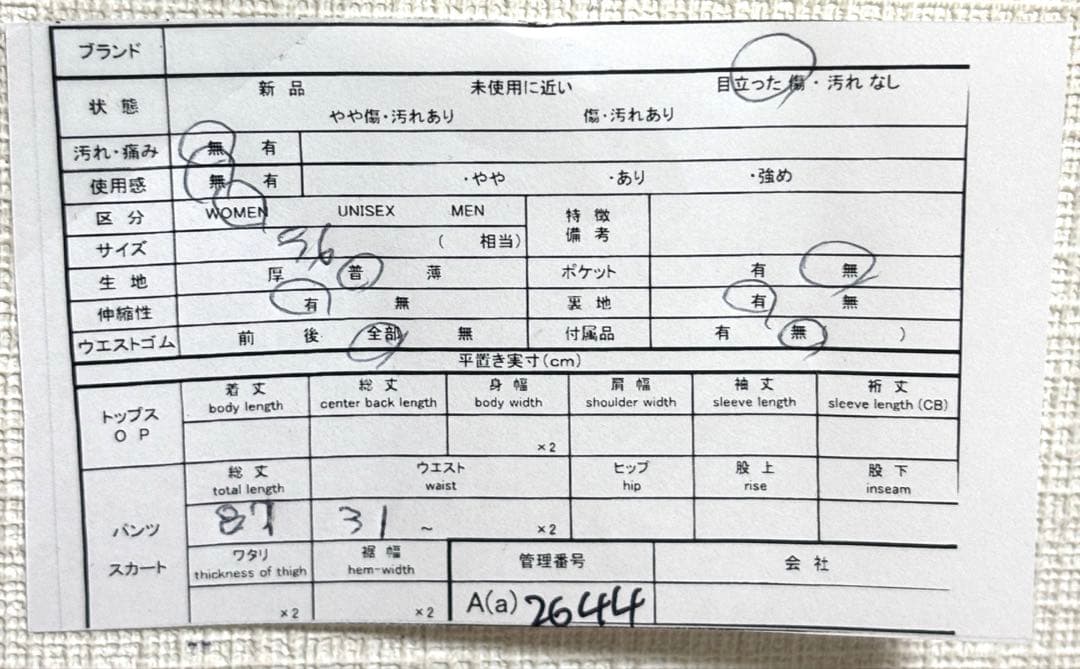 ブランド
状態 新品 未使用に近い 目立った傷・汚れなし
やや傷・汚れあり 傷・汚れあり
汚れ・痛み 無 有
使用感 無 有 ・やや ・あり ・強め
区分 WOMEN UNISEX MEN 特徴備考
サイズ 36 ( 相当)
生地 厚 普 薄 ポケット 有 無
伸縮性 有 無 裏地 有 無
ウエストゴム 前 後 全部 無 付属品 有 無 ( )
平置き実寸(cm)
トップス OP
着丈 総丈 身幅 肩幅 袖丈 裄丈
body length center back length body width shoulder width sleeve length sleeve length (CB)
×2
パンツ スカート
総丈 ウエスト ヒップ 股上 股下
total length waist hip rise inseam
87 31 ~ ×2
ワタリ 裾幅 管理番号 会社
thickness of thigh hem-width
×2 ×2 A(a) 2644